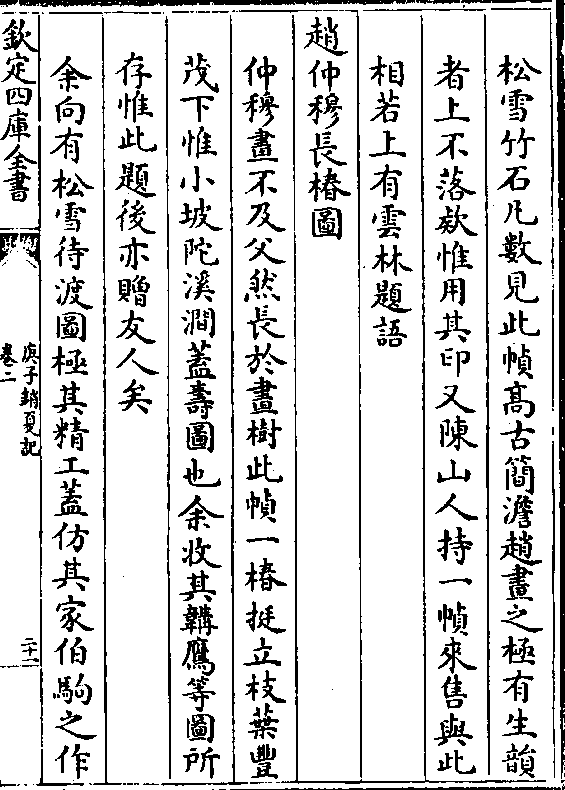 松雪竹石凡數見此幀髙古簡澹趙畫之極有生韻
者上不落欵惟用其印又陳山人持一幀來售與此
相若上有雲林題語
趙仲穆長椿圖
仲穆畫不及父然長於畫樹此幀一椿挺立枝葉豐
茂下惟小坡陀溪澗蓋壽圖也余收其韝鷹等圖所
存惟此題後亦贈友人矣
余向有松雪待渡圖極其精工蓋仿其家伯駒之作
欽定四庫全書
庚子銷夏記
卷二
二十一